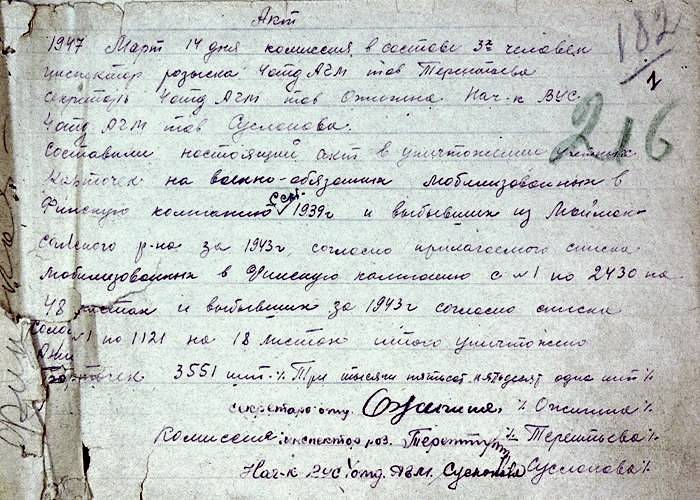 Акт
182
1
216
1947 Март 14 дня комиссия в составе 3х человек
инспектор розыска 4 отд АГМ тов Терентьева
секретарь 4 отд АГМ тов Ожигина Нач-к ВУС
4 отд АГМ тов Суслопова.
Составили настоящий акт в уничтожении учетных
карточек на военно-обязанных мобилизованных в
Финскую компанию 1939г и выбывших из
района р-на за 1943г, согласно прилагаемого списка
мобилизованных в Финскую кампанию с №1 по 2430 на
48 листах и выбывших за 1943г согласно списка
№1 по 1121 на 18 листах итого уничтожено
карточек 3551 шт. % Три тысячи пятьсот пятьдесят одна шт %
секретарь отд. % Ожигина %
Комиссия: инспектор роз. % Терентьева %
Нач-к ВУС отд. АГМ. Суслопова Суслопова %